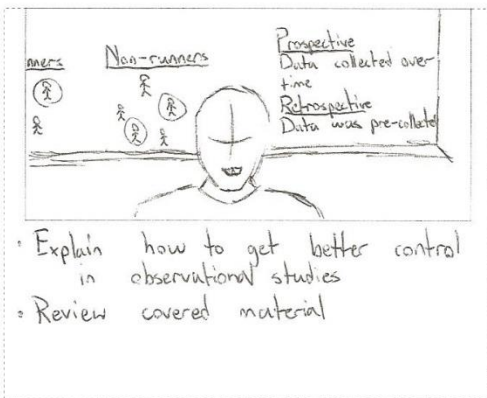 nners
Non-runners
Prospective
Data collected over
time
Retrospective
Data was pre-collected
• Explain how to get better control
in observational studies
• Review covered material